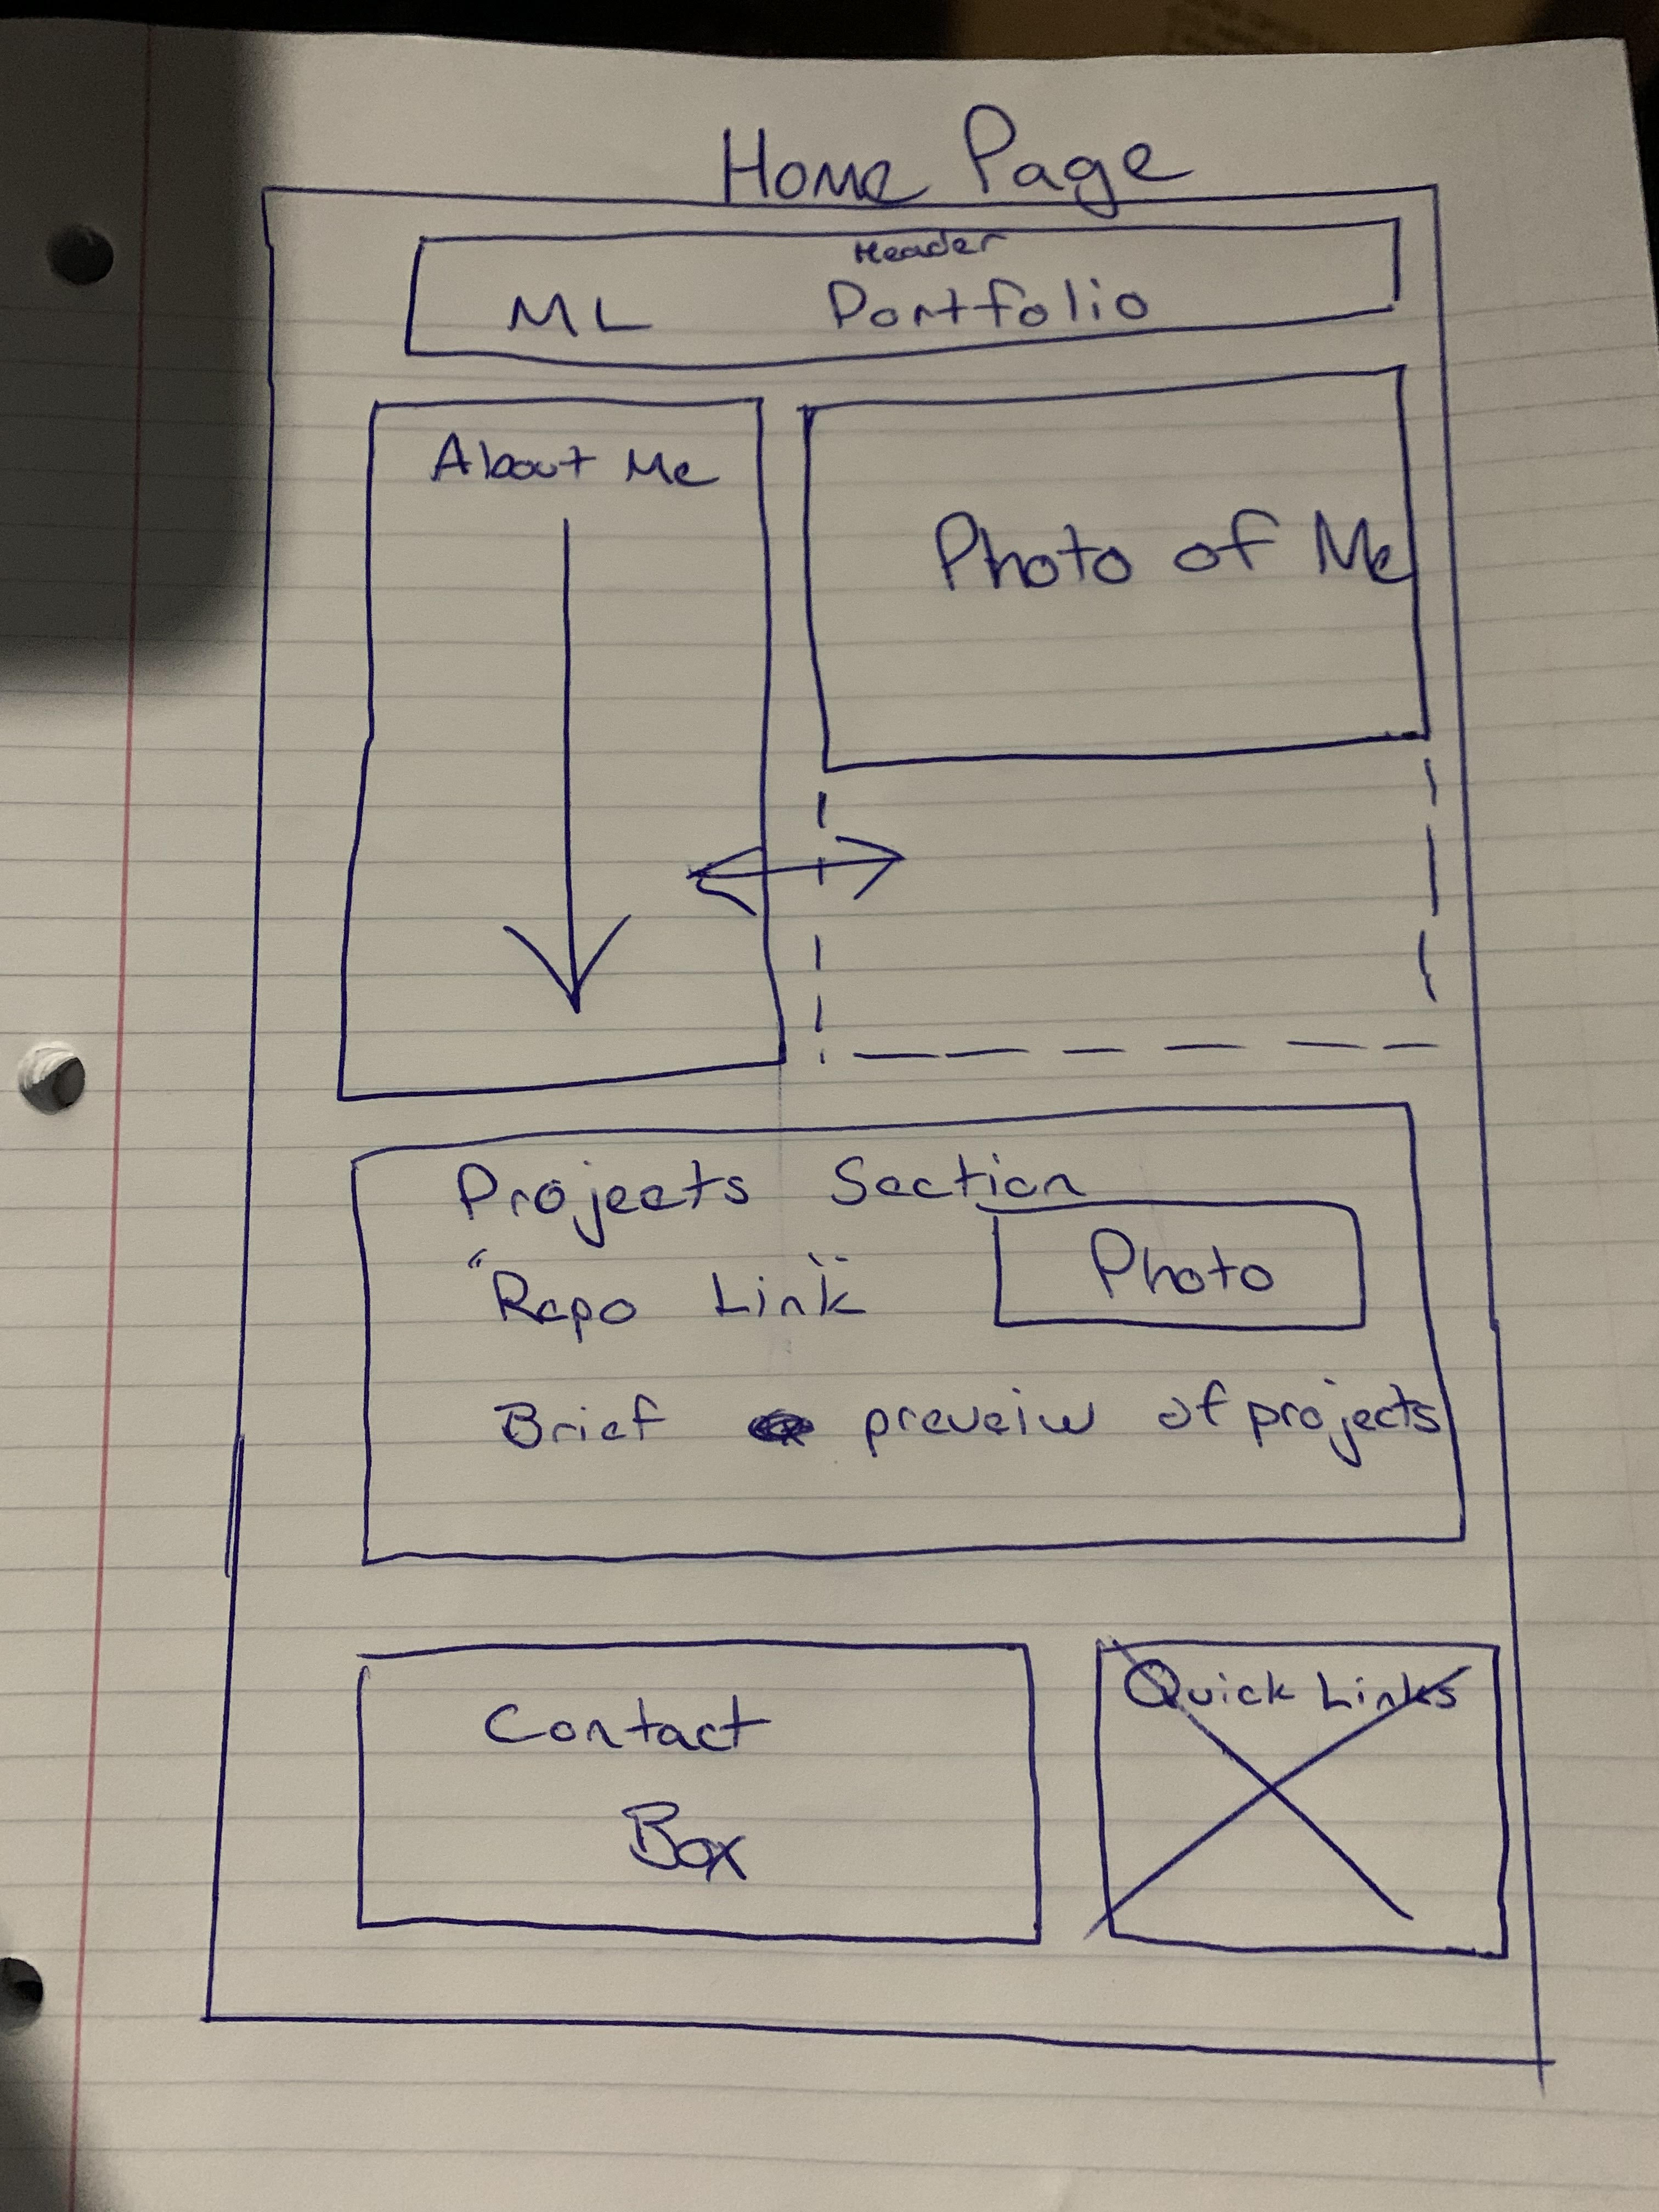 Home Page
Header
ML Portfolio
About Me
Photo of Me
Projects Section
"Repo Link"
Photo
Brief preveiw of projects
Contact
Box
Quick Links